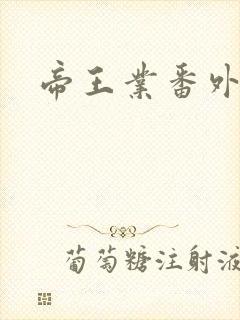 帝王业番外
葡萄糖注射液